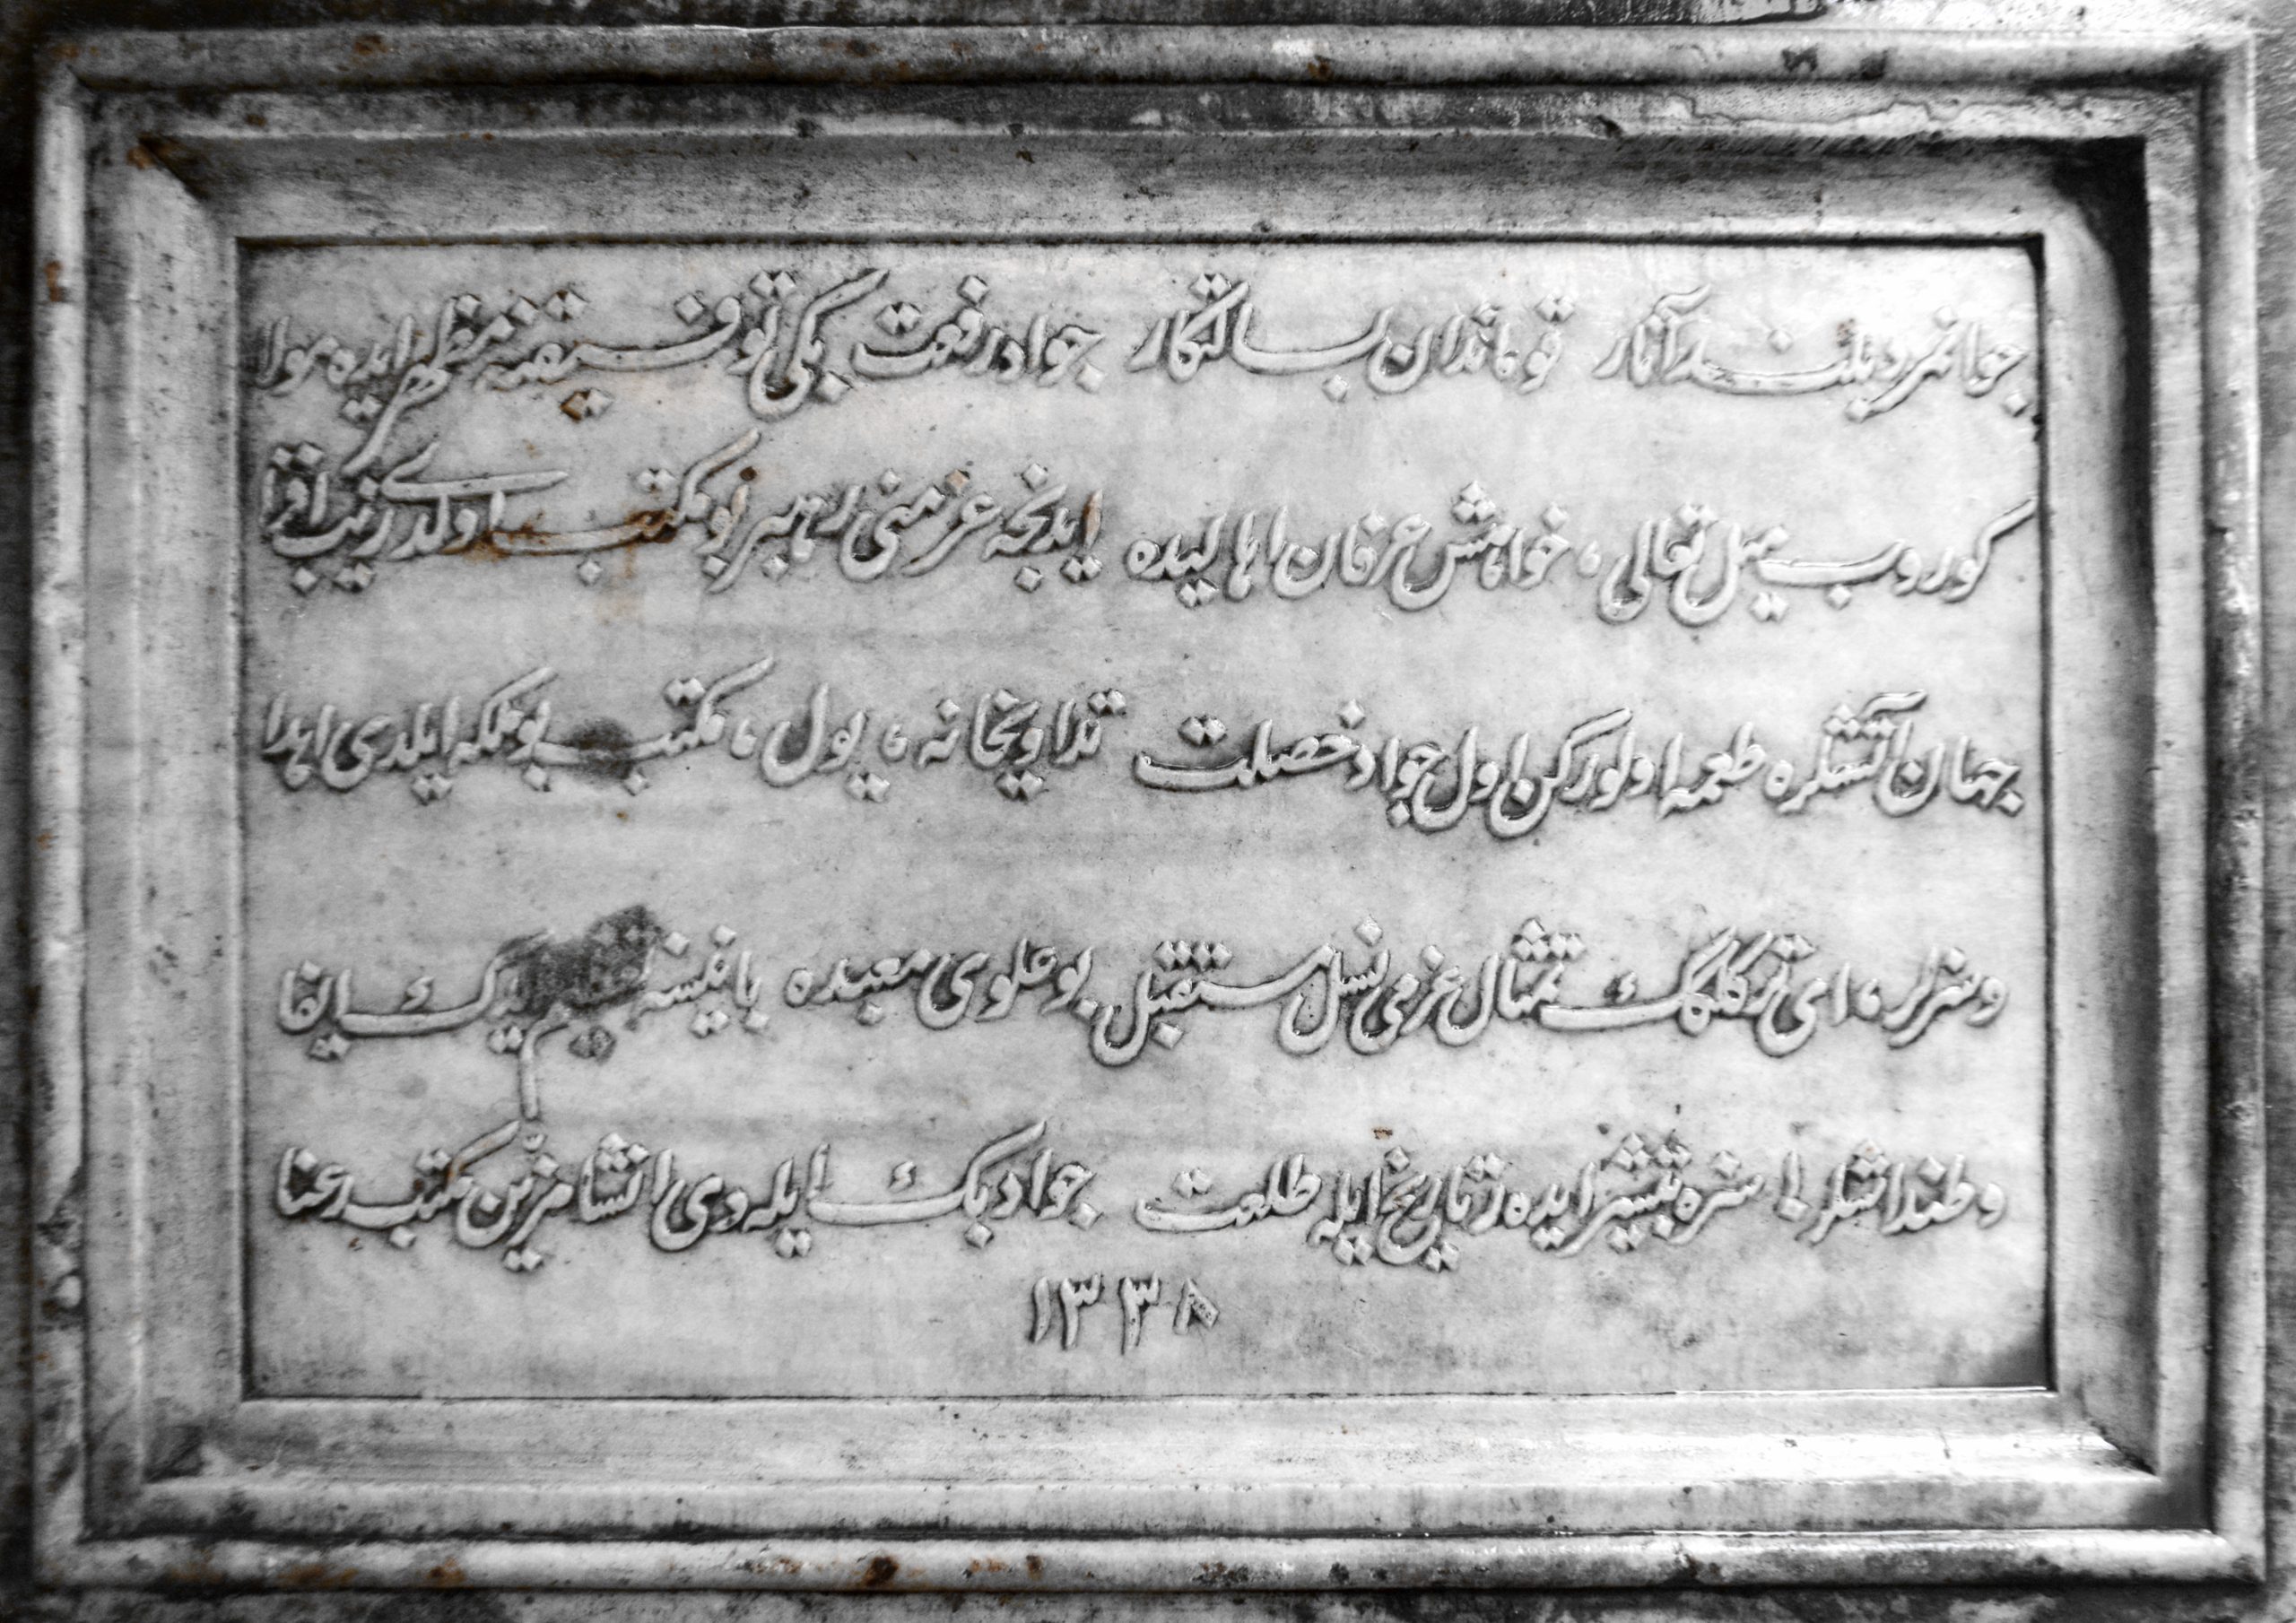 جوانمرد بلند آثار قوماندان بسالتكار جواد رفعت بكى توفيقنه مظهر ايده مولا
كوروب ميل تعالى، خواهش عرفان اهاليده ايدنجه عزمنى رهبر بو مكتب اولدى زيب افزا
جهان آتشلره طعمه اولوركن اول جواد خصلت تداويخانه، يول، مكتب بو ملكه ايلدى اهدا
وسزلر، اى تركلكڭ تمثال عزمى نسل مستقبل بو علوى معبده بافيسه ايدڭ ايفا
وطنداشلر! سزه تبشير ايده ر تاريخ ايله طلعت جواد بڭ ايله دى انشا مزيّن مكتب رعنا
١٣٣٨